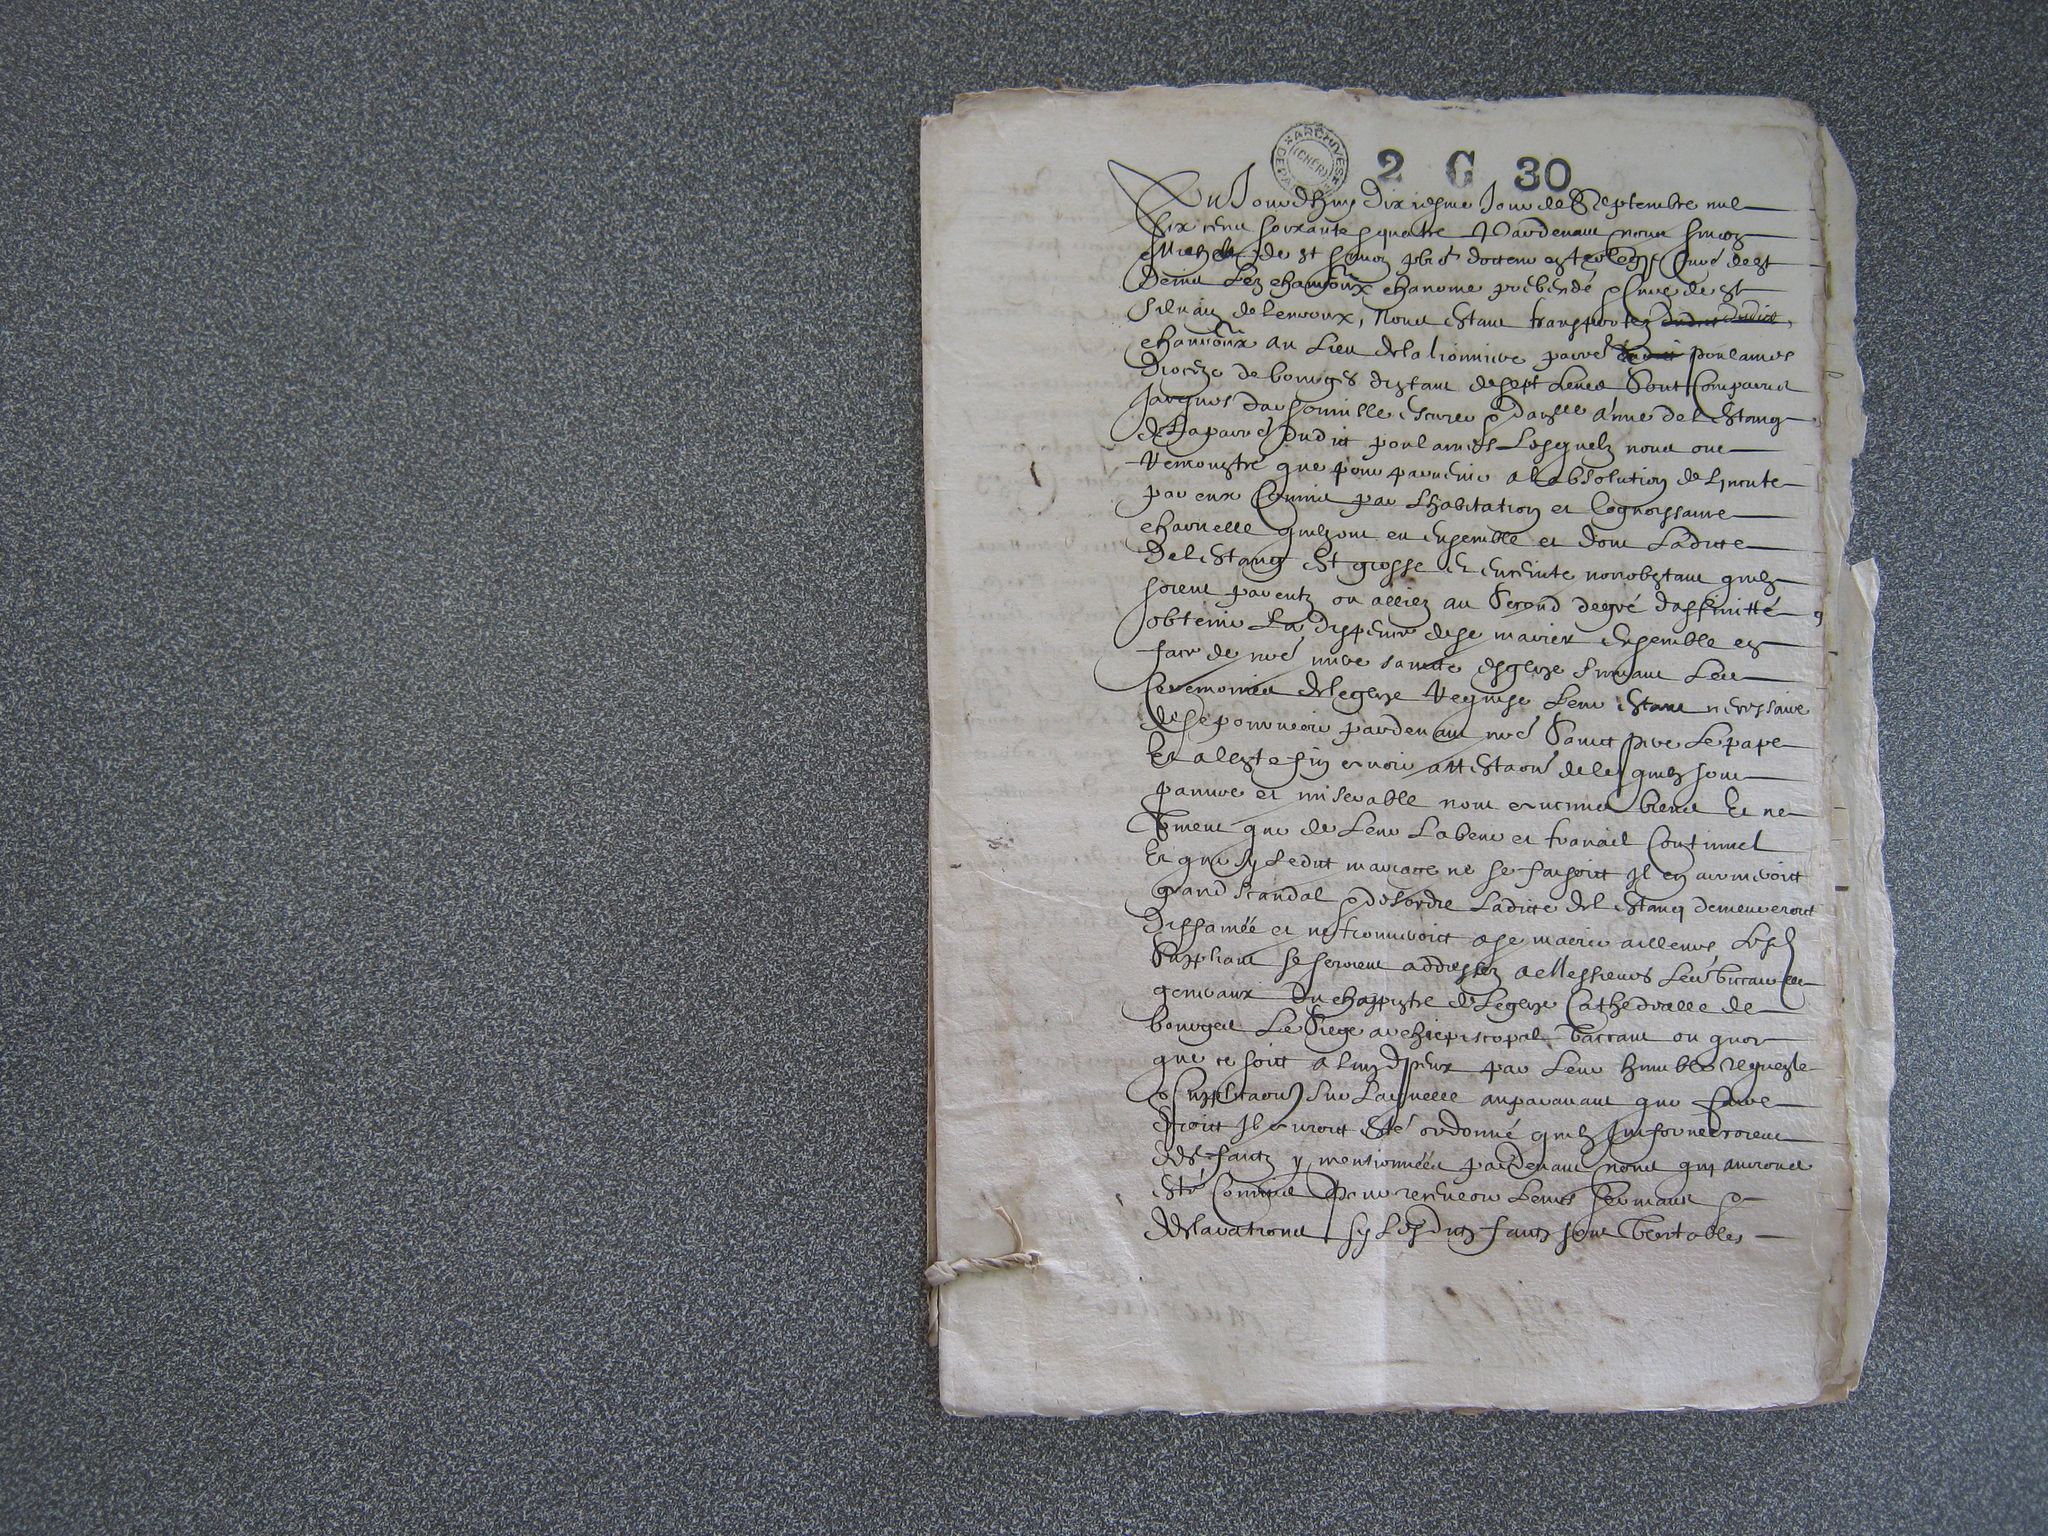 ARCHIVES DEPA
(CHER)
2 G 30
Aujourdhuy dixiesme Jour de Septembre mil
six cent soixante & quatre Pardevant nous
Michel de St Simon pbre docteur en teologie Curé de St
Denis Les chanoine prébendé & Curé de St
Silvain de Levroux, Nous estant transportez
au Lieu de la Lionniere parre poulaines
Diocèze de bourges distant de sept Lieues Sont Comparus
Jacques escuier & damlle Anne de l Estang
de La parre dudit poulaines Lesquelz nous ont
Remonstré que pour parvenir a l absolution de L Inceste
par eux Commis par L habitation et Cognoissance
charnelle quilz ont eu ensemble et dont Laditte
Del Estang est grosse et enceinte nonobstant quilz
soient parentz ou alliez au Second degré daffinitté
obtenir La dispence de se marier ensemble en
face de nre mere saincte esglize suivant Les
Ceremonies de legize Requise Leur estant necessaire
de se pourvoir pardevant nre Sainct pere Le pape
Et a ceste fin avoir attestaon de ce quilz sont
pauvre et miserable nont aucuns biens Et ne
vivent que de Leur Labeur et travail Continuel
Et que sy Ledit mariage ne se faisoit Il en arriveroit
grand scandal & desordre Laditte del Estang demeureroit
Diffamée et ne trouveroit a se marier ailleurs Lesd
Suppliant se seroient addressez a Messieurs Les vicaires
generaux du chappistre de Legize Cathedralle de
bourges Le Siege archiepiscopal vaccant ou quoy
que ce soit a par Leur humble requeste
& supplicaon sur Laquelle auparavant que faire
droict Il auroit esté ordonné quilz Informeroient
des faitz y mentionnées pardevant nous qui aurions
esté Commis pour recevoir Leurs Sermant &
declarations sy Lesditz faitz sont veritables